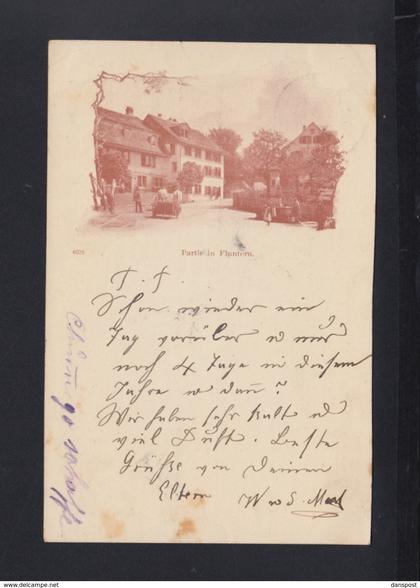 4028
Partie in Fluntern.
T. T.
Schon wieder ein
Tag vorüber u nur
noch 4 Tage in diesem
Jahre u dann?
Wir haben sehr kalt u
viel Duft. Beste
Grüsse von Deinen
Eltern W u S.
© delcampe.net
danspost